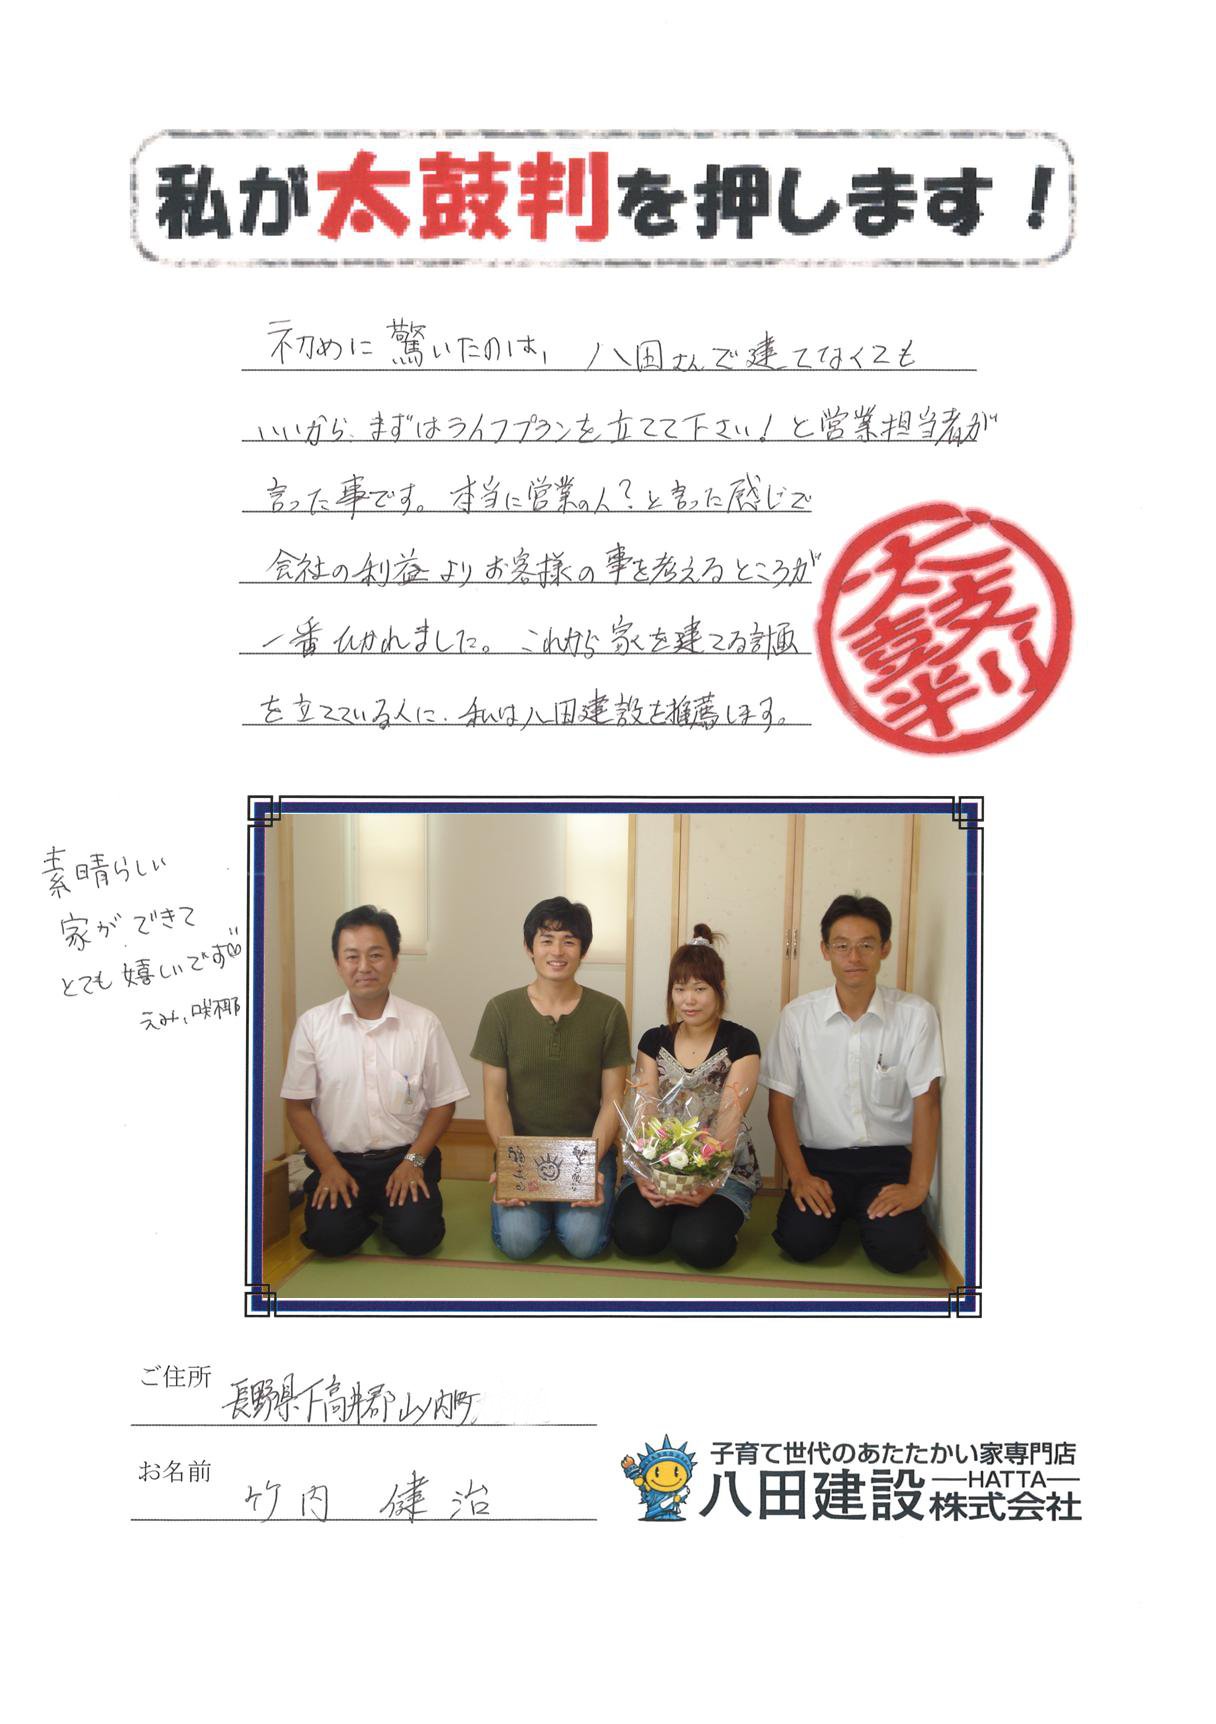 私が太鼓判を押します！
初めに驚いたのは、八田さんで建てなくても
いいから、まずはライフプランを立てて下さい！と営業担当者が
言った事です。本当に営業の人？と言った感じで
会社の利益よりお客様の事を考えるところが
一番ひかれました。これから家を建てる計画
を立てている人に、私は八田建設を推薦します。
太鼓判
素晴らしい
家ができて
とても嬉しいです
えみ、咲椰
ご住所 長野県下高井郡山ノ内町
お名前 竹内 健治
子育て世代のあたたかい家専門店
八田建設 HATTA 株式会社